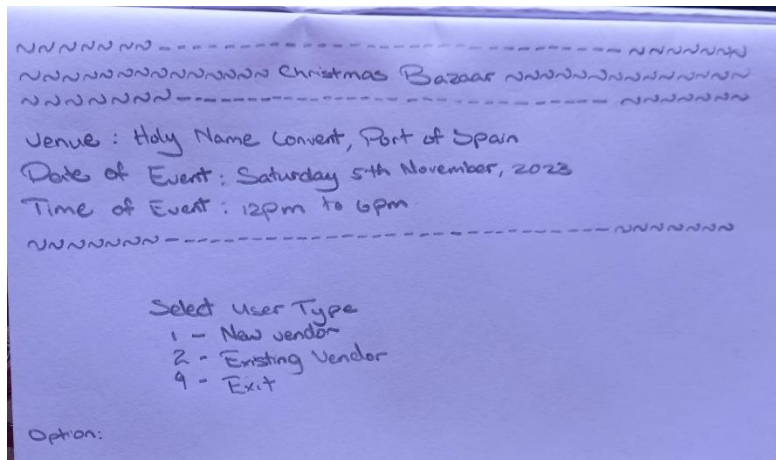 ~~~~~~~------------------------------------~~~~~~~
~~~~~~~~~~~~~~ Christmas Bazaar ~~~~~~~~~~~~~~
~~~~~~~------------------------------------~~~~~~~
Venue : Holy Name Convent, Port of Spain
Date of Event : Saturday 5th November, 2023
Time of Event : 12pm to 6pm
~~~~~~~------------------------------------~~~~~~~
Select User Type
1 - New vendor
2 - Existing Vendor
9 - Exit
Option: